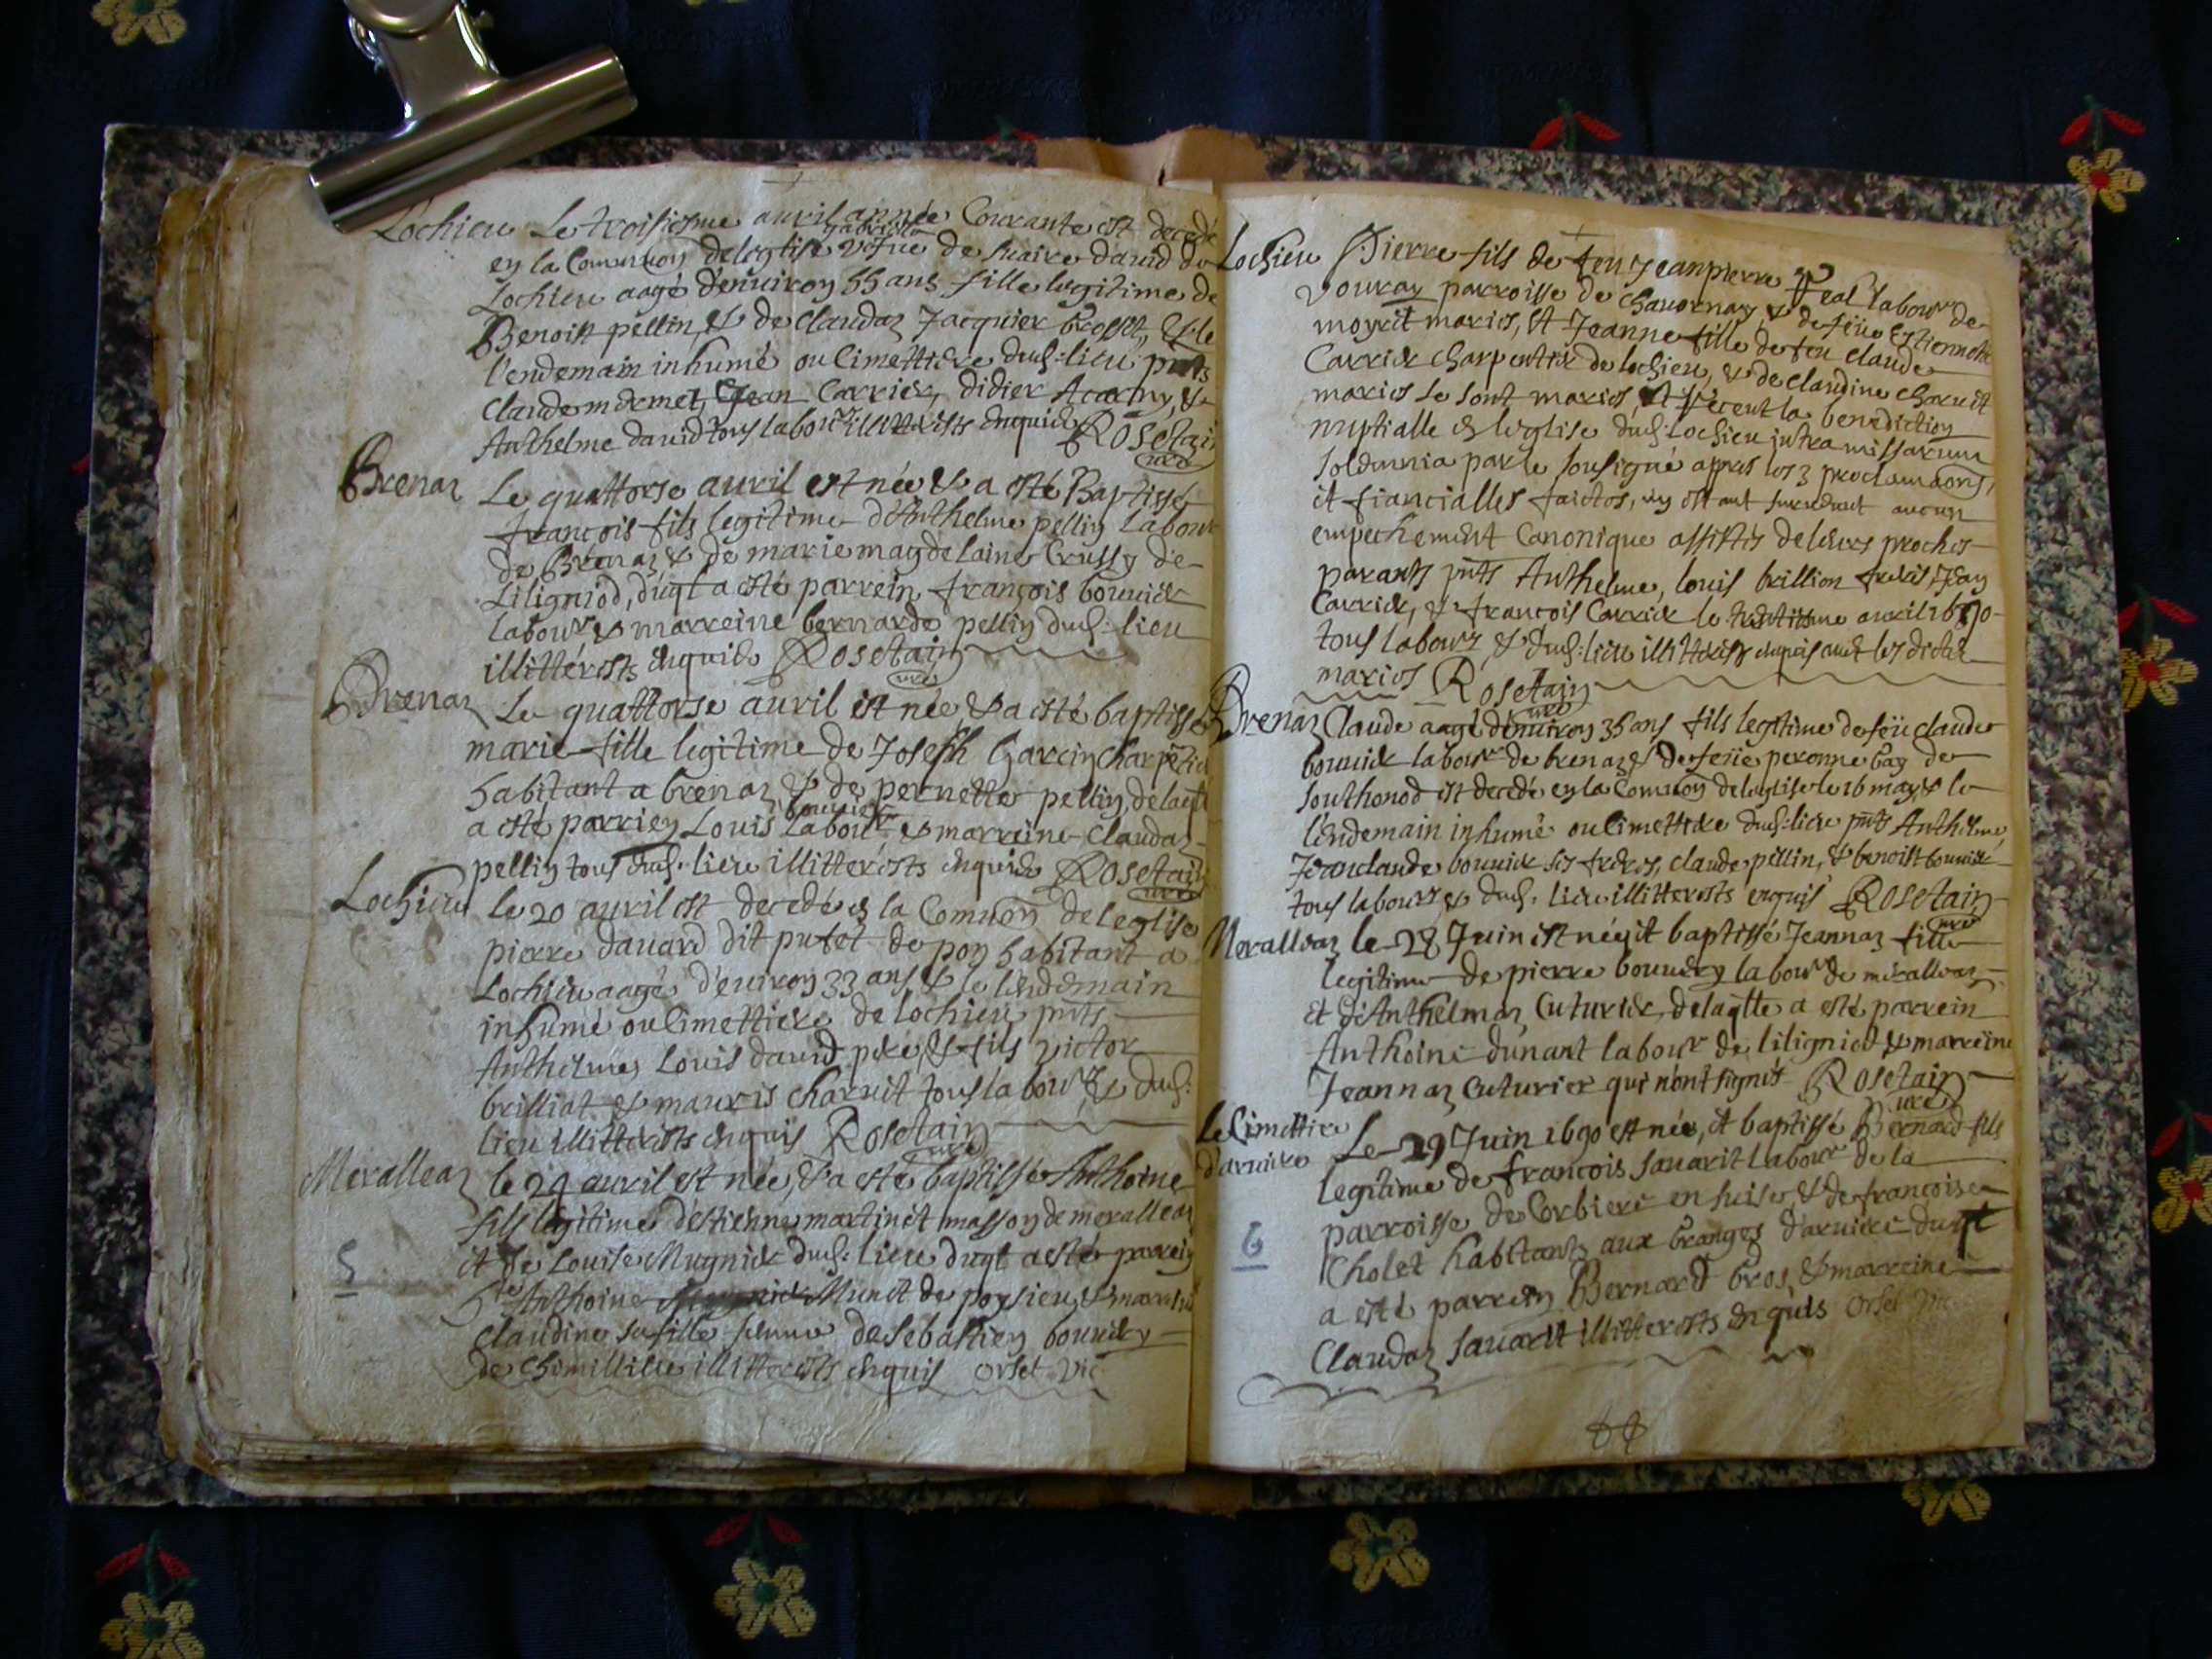 Lochieu Le troisiesme auril année Courante est decedé
en la Commuon de leglise vefue de hilaire dauid de
Lochieu aagé d'enuiron 55 ans fille legitime de
Benoist pellin, & de Claudaz Jacquier brosset, & le
l'endemain inhumé ou Cimettiere dud: lieu pnts
Claude mermet, Jean Carrier, didier & 
Anthelme dauid tous labours illitterests enquis Rosetain
curé
Brenaz Le quattorse auril est née & a esté Baptissé
françois fils legitime d'Anthelme pellin Labour
de Brenaz & de marie magdelaine Crussy de
Liligniod, duqt a esté parrein françois bouuier
labour & marreine bernarde pellin dud: lieu
illittérests enquis Rosetain
curé
Brenaz Le quattorse auril est née, & a esté baptissé
marie fille legitime de Joseph Garcin Charpetier
habitant a brenaz & de pernette pellin, de laqte
bouuier
a esté parrien Louis labour & marreine Claudaz
pellin tous dud: lieu illitterests enquis Rosetain
curé
Lochieu le 20 auril est decedé en la Commuon de leglise
pierre dauard dit putet de pon habitant a
Lochieu aagé d'enuiron 33 ans, & le lendemain
inhumé ou Cimettiere de lochieu pnts
Anthelmes Louis dauid pere, & fils victor
brilliat & mauris charuit tous labours & dud:
lieu illitterests enquis Rosetain
curé
Meralleaz le 29 auril est née, & a esté baptissé Anthoine
fils legitime d'estienne martinet masson de meralleaz
et de Louise Mugnier dud: lieu duqt a esté parrein
Anthoine Munet de poysieu, & marreine
Claudine sa fille femme de Sebastien bouuery
de Chemillieu illitterests enquis orset vic
5
Lochieu Pierre fils de feu Jeanpierre Real labour de
vouray parroisse de Chauornay & de feüe Estiennette
moyret maries, et Jeanne fille de feu Claude
Carrier Charpentier de lochieu, & de Claudine Charuit
maries se sont maries, et receut la benediction
nuptialle en leglise dud: Lochieu intra missarum
solemnia par le sousigné appres les 3 proclamaons,
et fiancialles faictes, ny estant suruenut aucun
empechement Canonique assistés de leurs proches
parants pnts Anthelme, louis brillion freres, Jean
Carrier, & françois Carrier le trentiesme auril 1690
tous labours, & dud: lieu illitterests enquis auec les dicts
maries Rosetain
curé
Brenaz Claude aagé d'enuiron 35 ans fils legitime de feu claude
bouuier labour de brenaz & de feüe peronne bay de
Southonod est decedé en la Commuon de leglise le 16 may, & le
l'endemain inhumé ou Cimettiere dud: lieu pnts Anthelme,
Jeanclaude bouuier ses freres, claude pellin, & benoist bouuier
tous labours & dud: lieu illitterests enquis Rosetain
curé
Meralleaz le 28 Juin est née, et baptissé Jeannaz fille
legitime de pierre bouuery labour de meralleaz
et d'Anthelmaz Cuturier, de laqtte a esté parrein
Anthoine dunant labour de liligniod & marreine
Jeannaz Cuturier qui n'ont signés Rosetain
curé
le Cimettire
d'aruiere
Le 29 Juin 1690 est née, et baptissé Bernard fils
legitime de françois Sauarit Labour de la
parroisse de Corbiere en suise, & de françoise
Cholet habitants aux Granges d'aruiere duqt
a esté parrein Bernard Gros, & marreine
Claudaz Sauarit illitterests enquis orset vic
6